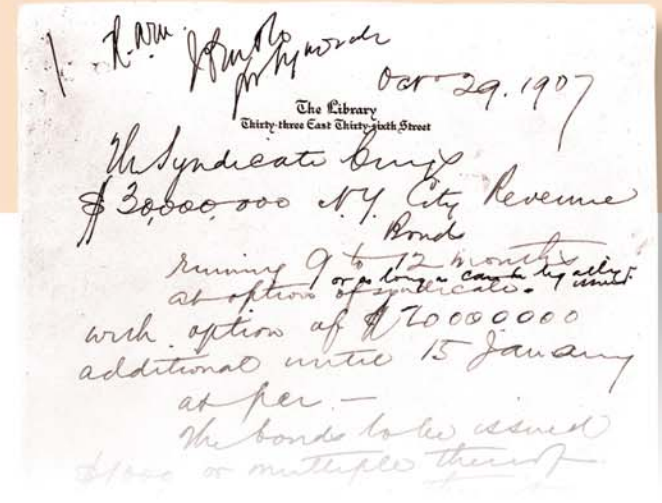 Oct 29. 1907
The Library
Thirty-three East Thirty-sixth Street
The Syndicate buys
$30,000,000 N.Y. City Revenue
Bonds
running 9 to 12 months
or as long as can be legally issued.
at option of syndicate.
with option of $20000000
additional until 15 January
at par —
The bonds to be issued
$1000 or multiple thereof